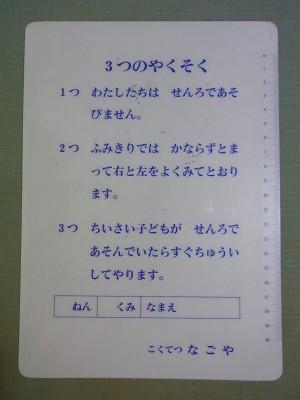 3つのやくそく
1つ わたしたちは せんろであそ
びません。
2つ ふみきりでは かならずとま
って右と左をよくみてとおり
ます。
3つ ちいさい子どもが せんろで
あそんでいたらすぐちゅうい
してやります。
ねん くみ なまえ
こくてつ なごや